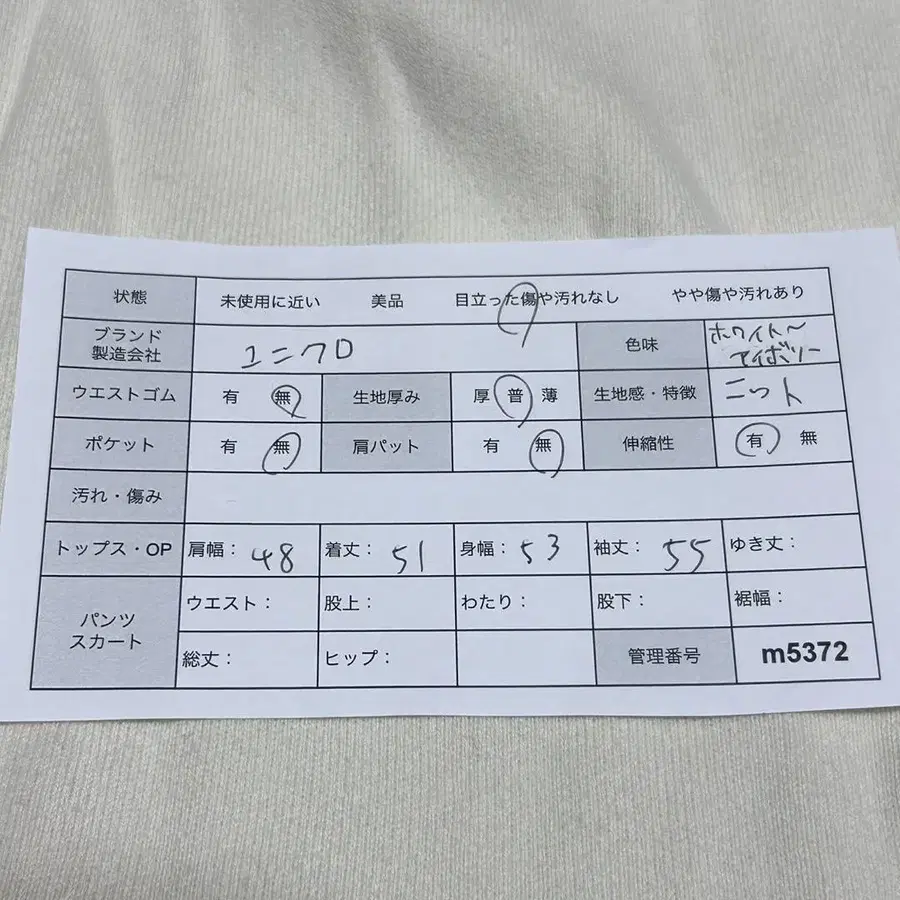 状態 未使用に近い 美品 目立った傷や汚れなし やや傷や汚れあり
ブランド 製造会社 ユニクロ 色味 ホワイト〜 アイボリー
ウエストゴム 有 無 生地厚み 厚 普 薄 生地感・特徴 ニット
ポケット 有 無 肩パット 有 無 伸縮性 有 無
汚れ・傷み
トップス・OP 肩幅： 48 着丈： 51 身幅： 53 袖丈： 55 ゆき丈：
パンツ スカート ウエスト： 股上： わたり： 股下： 裾幅：
総丈： ヒップ： 管理番号 m5372